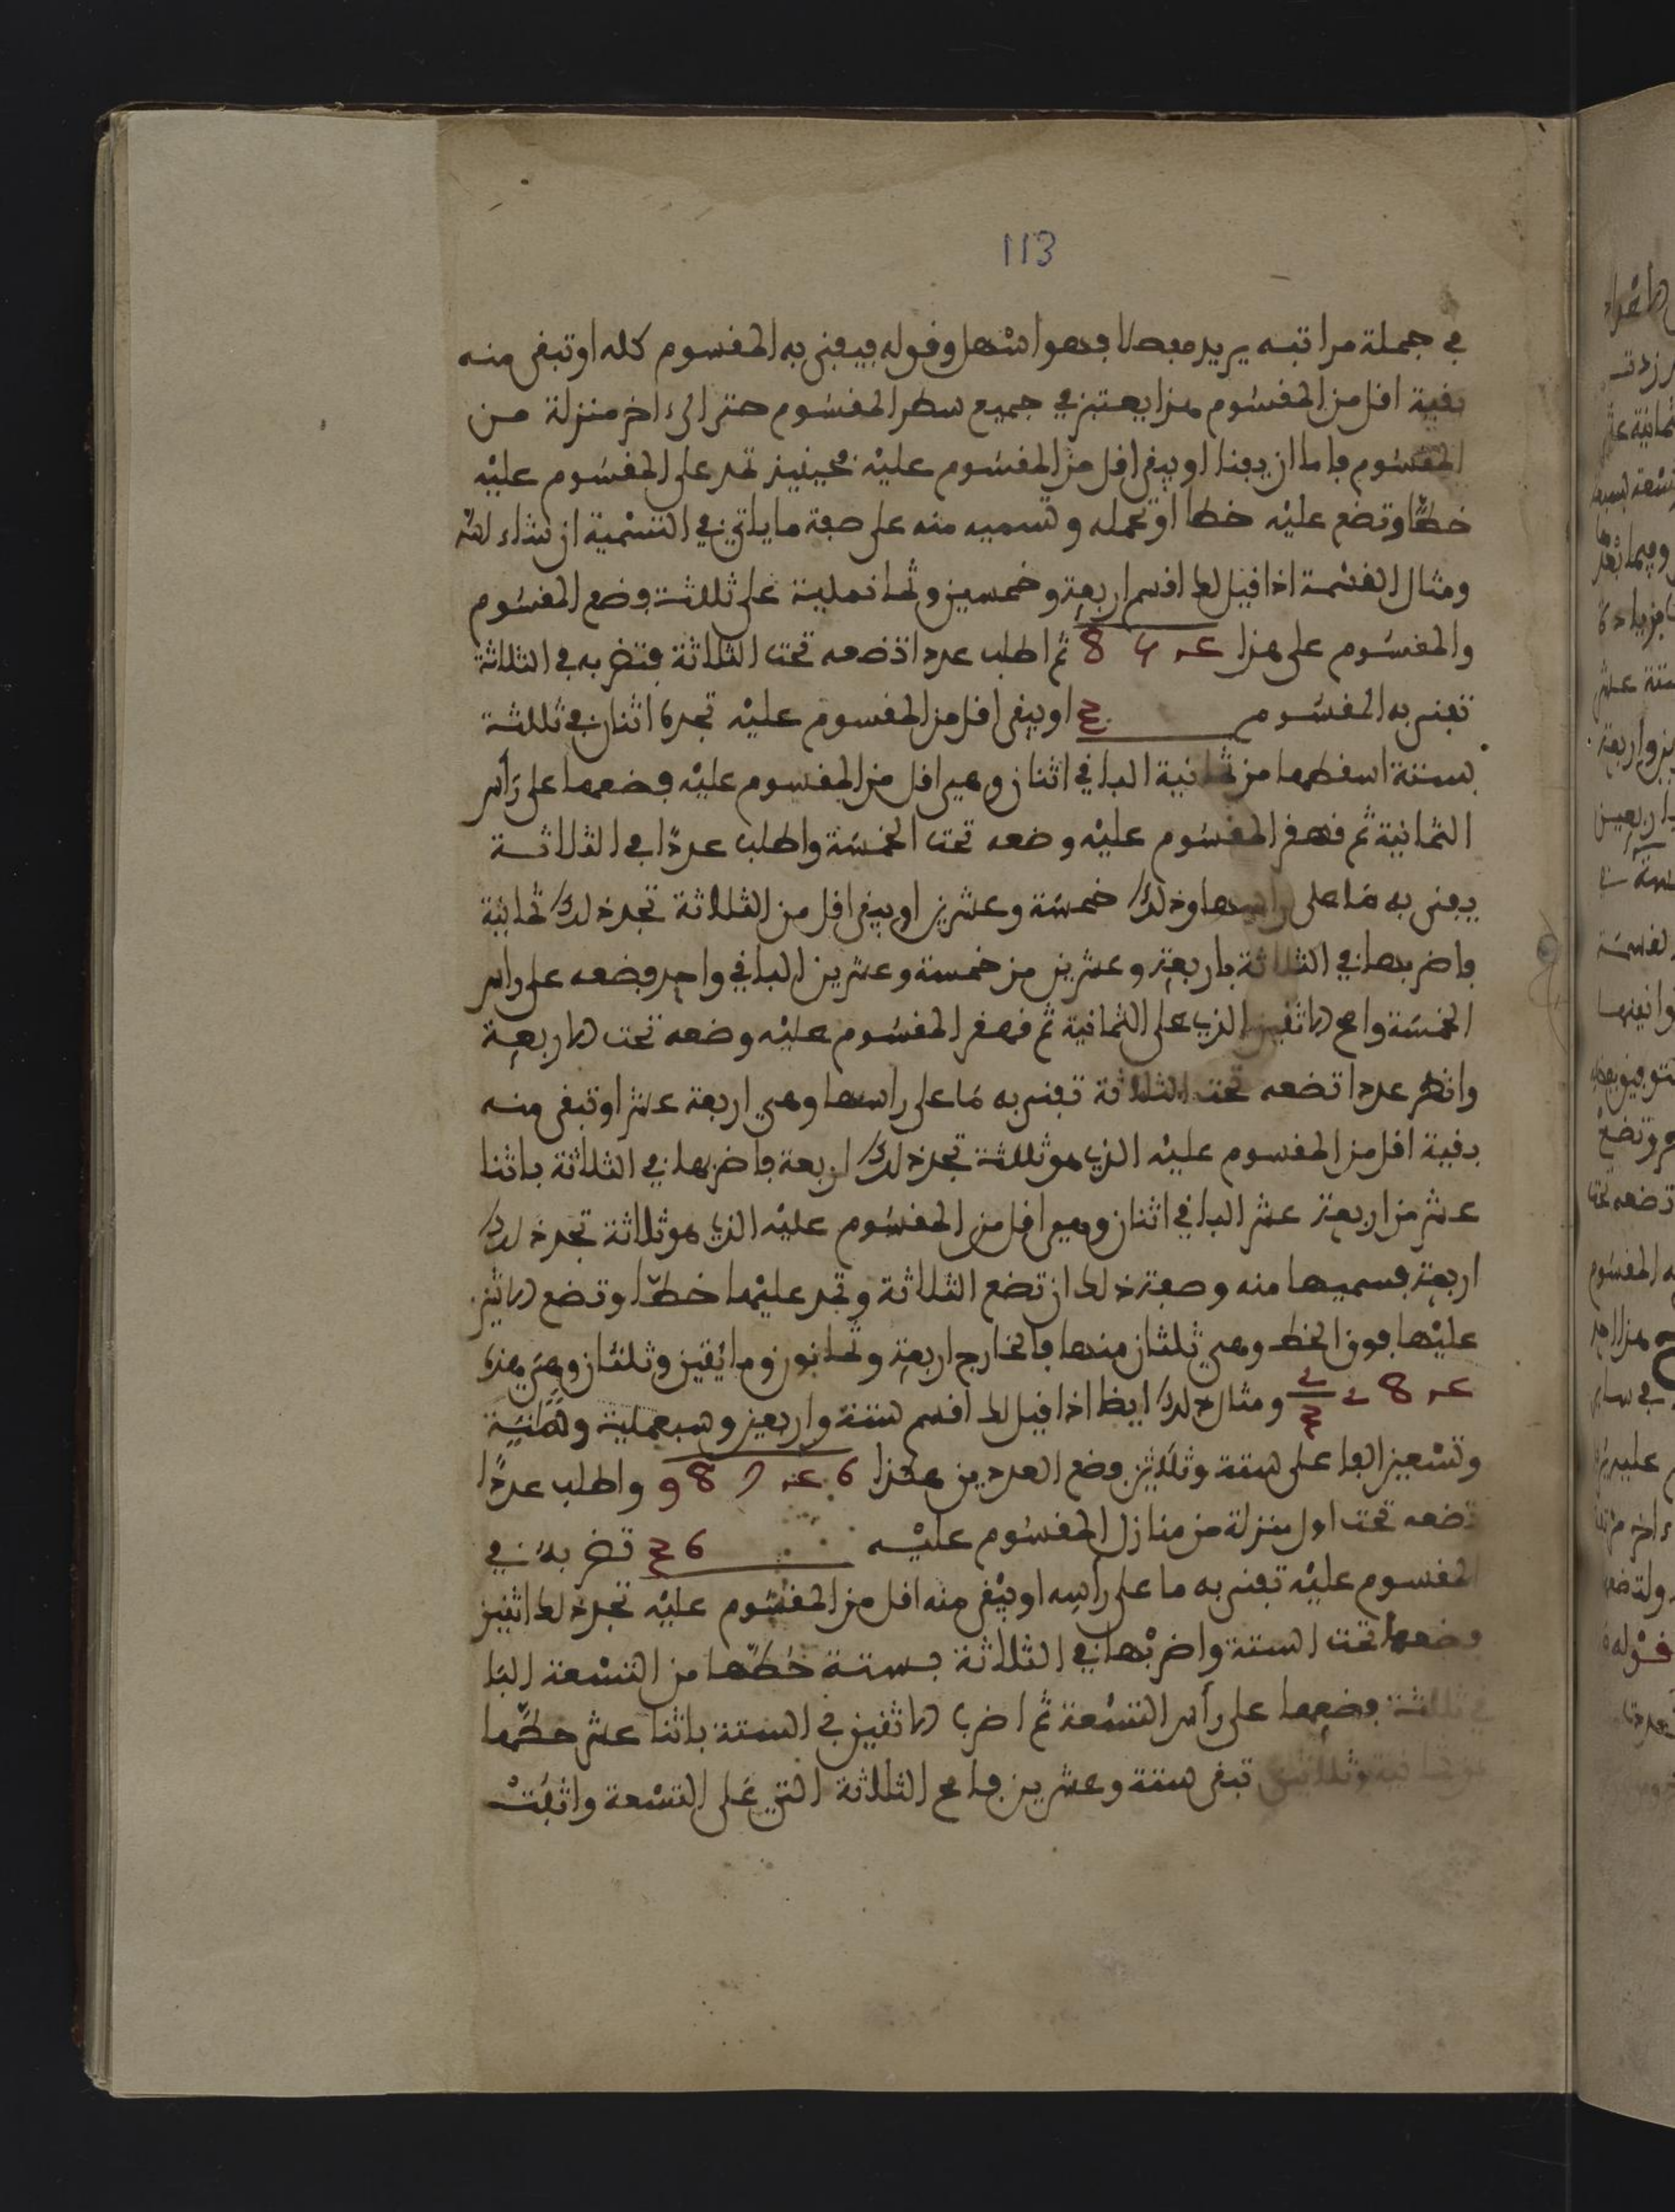 113
في جملة مراتبه يريد مفصلا فهو اسهل وقوله فيفنى به المقسوم كله او تبقى منه
بقية اقل من المقسوم هذا يعتبر في جميع سطر المقسوم حتى الى ءاخر منزلة من
المقسوم فاما ان يفنا او يبقى اقل من المقسوم عليه فحينيذ تمد على المقسوم عليه
خطا وتضع عليه خطا او تحمله وتسميه منه على صفة ما ياتي في التسمية ان شاء الله
ومثال القسمة اذا قيل لط اقسم اربعة وخمسين وثمانماية على ثلثة فضع المقسوم
والمقسوم على هذا 8 5 4 ثم اطلب عددا تضعه تحت الثلاثة فتضربه في الثلاثة
تفنى به المقسوم 3 او يبقى اقل من المقسوم عليه تجده اثنان في ثلثة
بستة اسقطها من ثمانية الباقي اثنان وهي اقل من المقسوم عليه فضعها على رأس
الثمانية ثم قهقر المقسوم عليه وضعه تحت الخمسة واطلب عددا في الثلاثة
يفنى به ما على راسها وذلك خمسة وعشرين او يبقى اقل من الثلاثة تجد ذلك ثمانية
فاضربها في الثلاثة باربعة وعشرين من خمسة وعشرين الباقي واحد فضعه على راس
الخمسة وامح الاثنين الذي على الثمانية ثم قهقر المقسوم عليه وضعه تحت الاربعة
وانظر عددا تضعه تحت الثلاثة تفنى به ما على راسها وهي اربعة عشر او تبقى منه
بقية اقل من المقسوم عليه الذي هو ثلثة تجد ذلك اربعة فاضربها في الثلاثة باثنا
عشر من اربعة عشر الباقي اثنان وهي اقل من المقسوم عليه الذي هو ثلاثة تجد ذلك
اربعة فسميها منه وصفة ذلط ان تضع الثلاثة وتمد عليها خطا وتضع الاثنين
عليها فوق الخط وهي ثلثان منها فالخارج اربعة وثمانون ومائتين وثلثان وهي هذه
2 8 4 2/3 ومثال ذلك ايظا اذا قيل لط اقسم ستة واربعين وسبعماية وثمانية
وتسعين الفا على ستة وثلاثين فضع العددين هكذا 9 8 7 4 6 واطلب عددا
تضعه تحت اول منزلة من منازل المقسوم عليه 3 6 تضربه في
المقسوم عليه تفنى به ما على راسه او يبقى منه اقل من المقسوم عليه تجد ذلط اثنين
فضعها تحت الستة واضربها في الثلاثة بستة حطها من التسعة البا
في ثلثة فضعها على رأس التسعة ثم اضرب الاثنين في الستة باثنا عشر حطها
من ثمانية وثلاثين تبقى ستة وعشرين فامح الثلاثة التي على التسعة واثبت